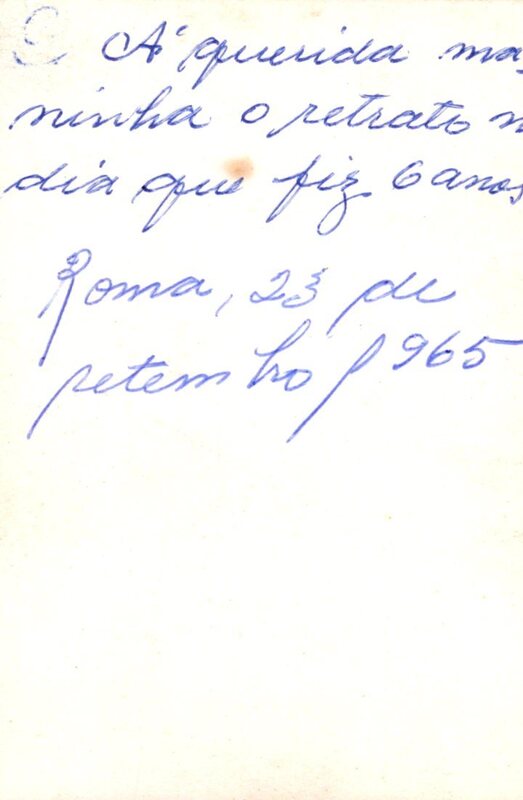 À querida ma-
ninha o retrato n
dia que fiz 6 anos
Roma, 23 de
setembro 1965